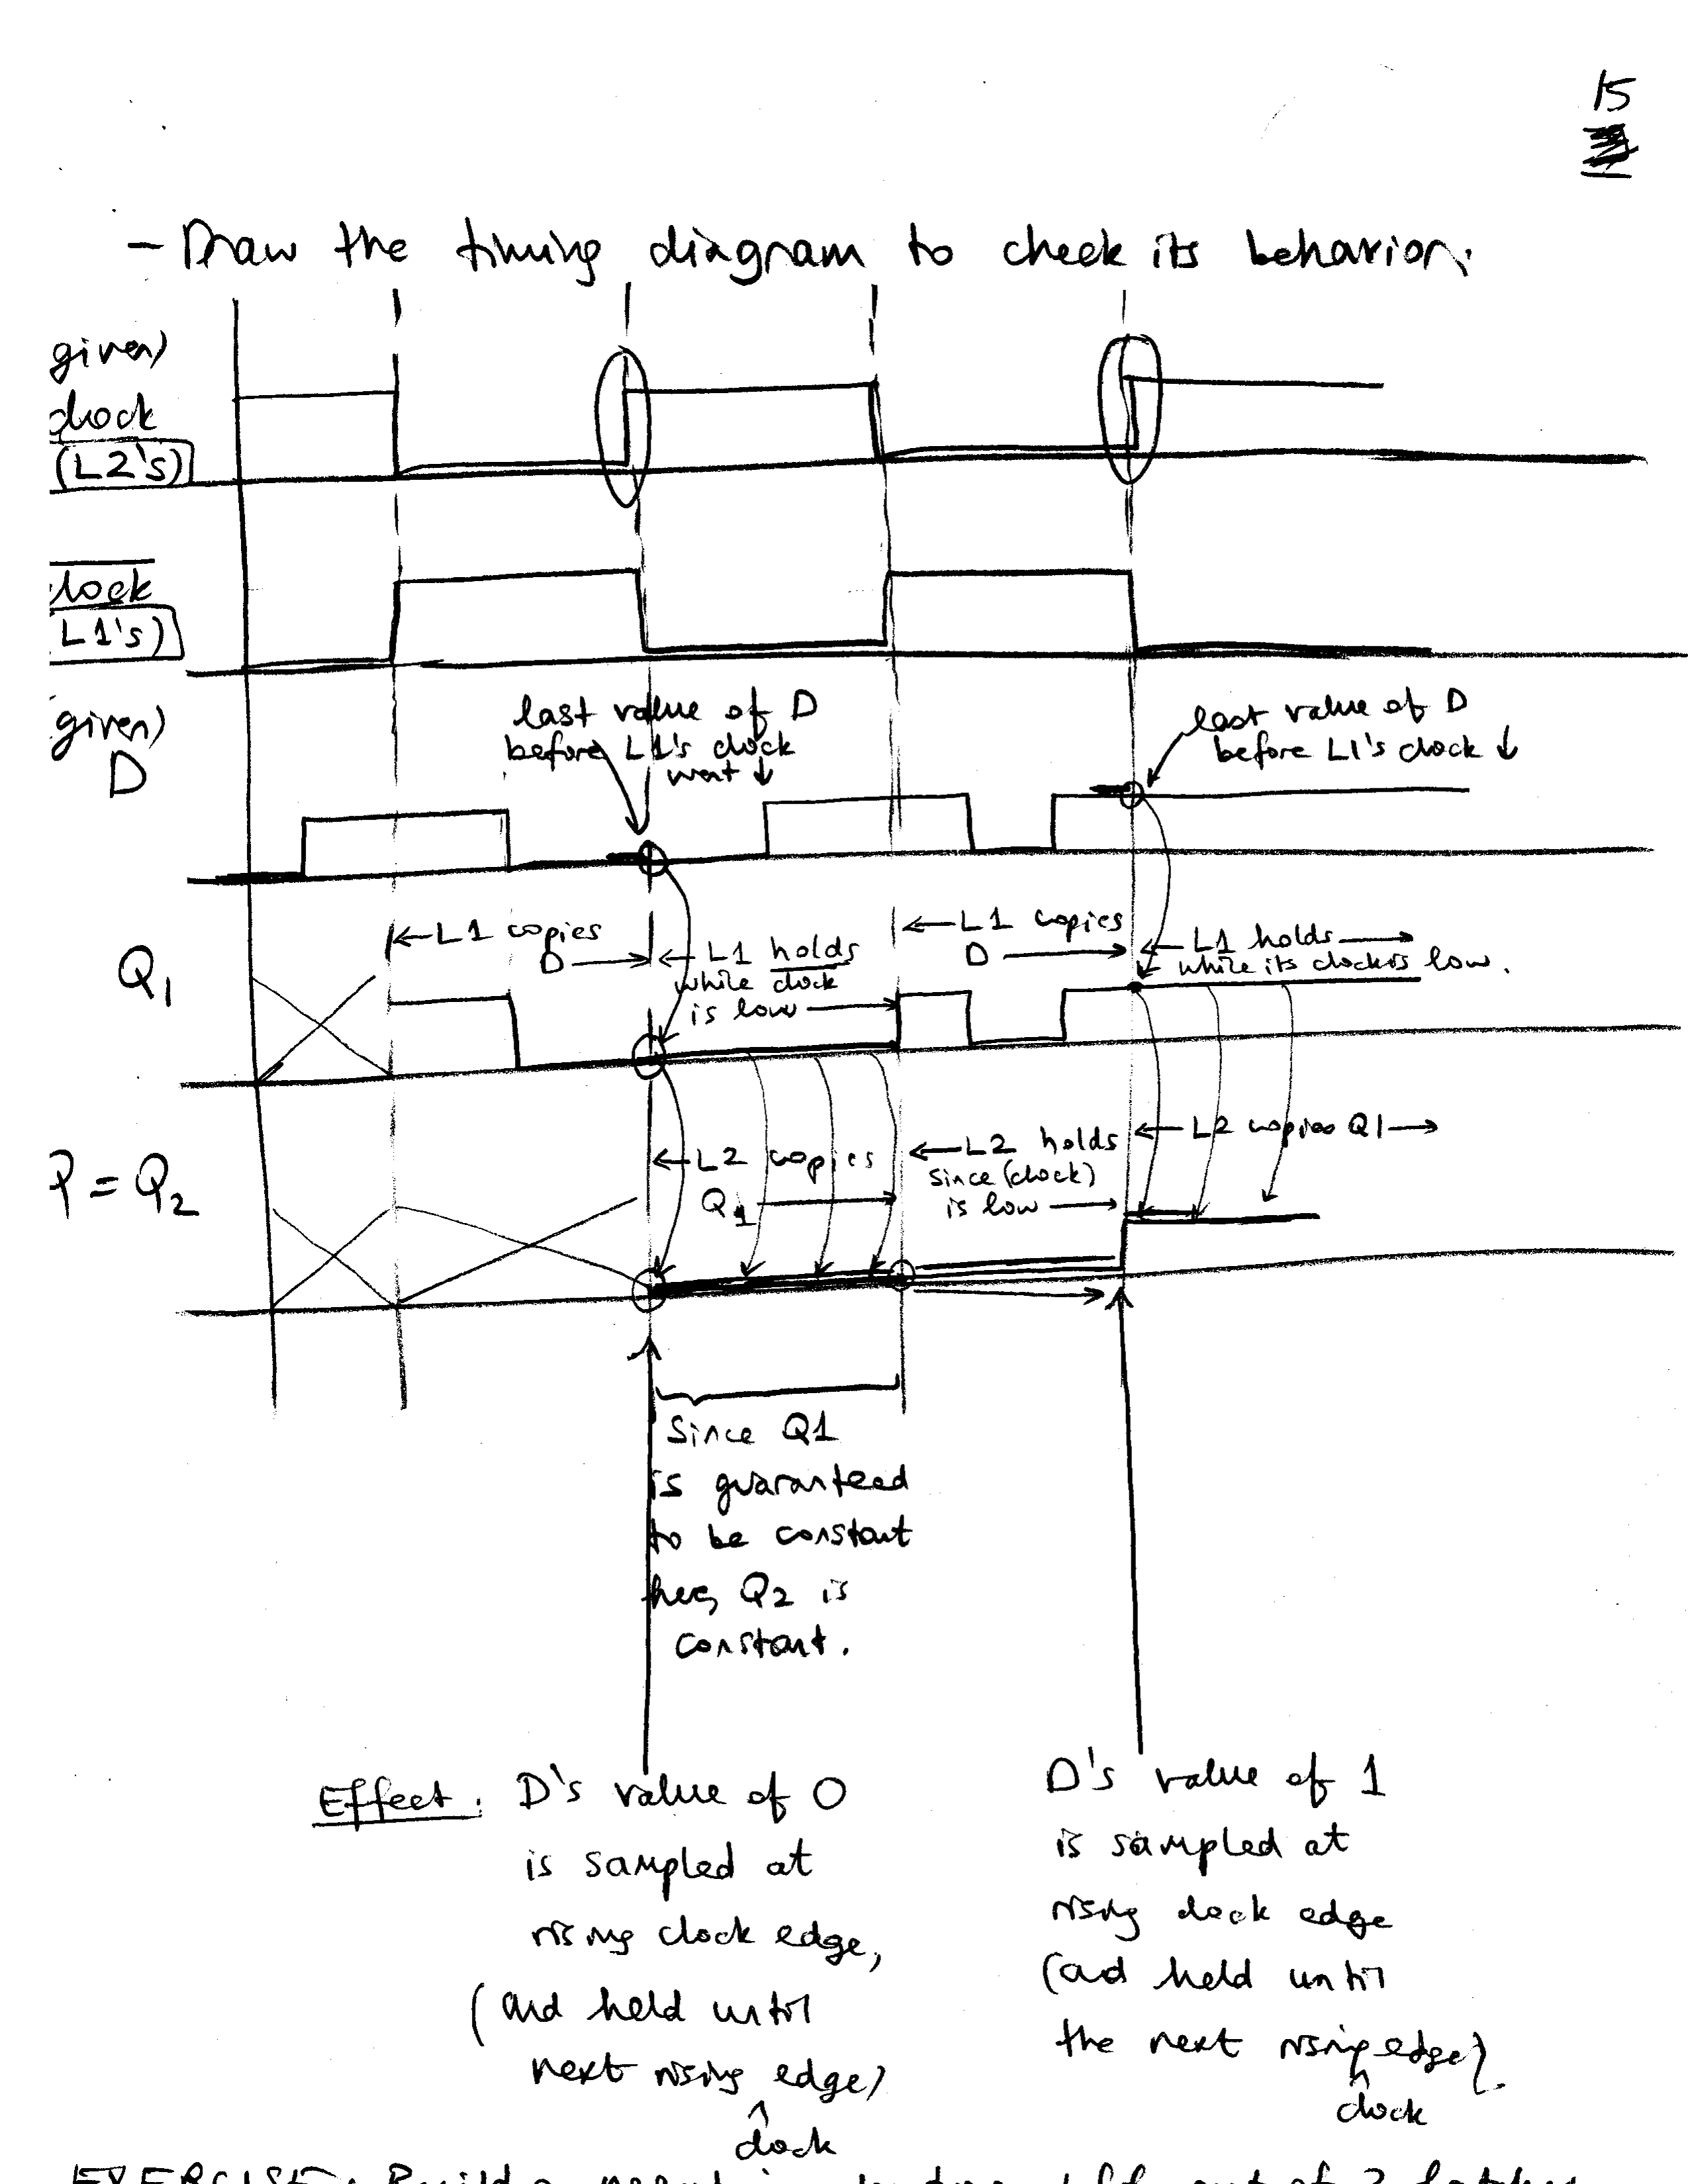 15
- Draw the timing diagram to check its behavior.
given)
clock
(L2's)
clock
L1's)
given)
D
last value of D
before L1's clock
went ↓
last value of D
before L1's clock ↓
Q1
← L1 copies
D →
← L1 holds
while clock
is low →
← L1 copies
D →
← L1 holds →
while its clock is low.
= Q2
← L2 copies
Q1 →
← L2 holds
since (clock)
is low →
← L2 copies Q1 →
Since Q1
is guaranteed
to be constant
here, Q2 is
constant.
Effect. D's value of 0
is sampled at
rising clock edge,
(and held until
next rising edge)
^
clock
D's value of 1
is sampled at
rising clock edge
(and held until
the next rising edge).
^
clock
EXERCISE: Build a out of 2 latches